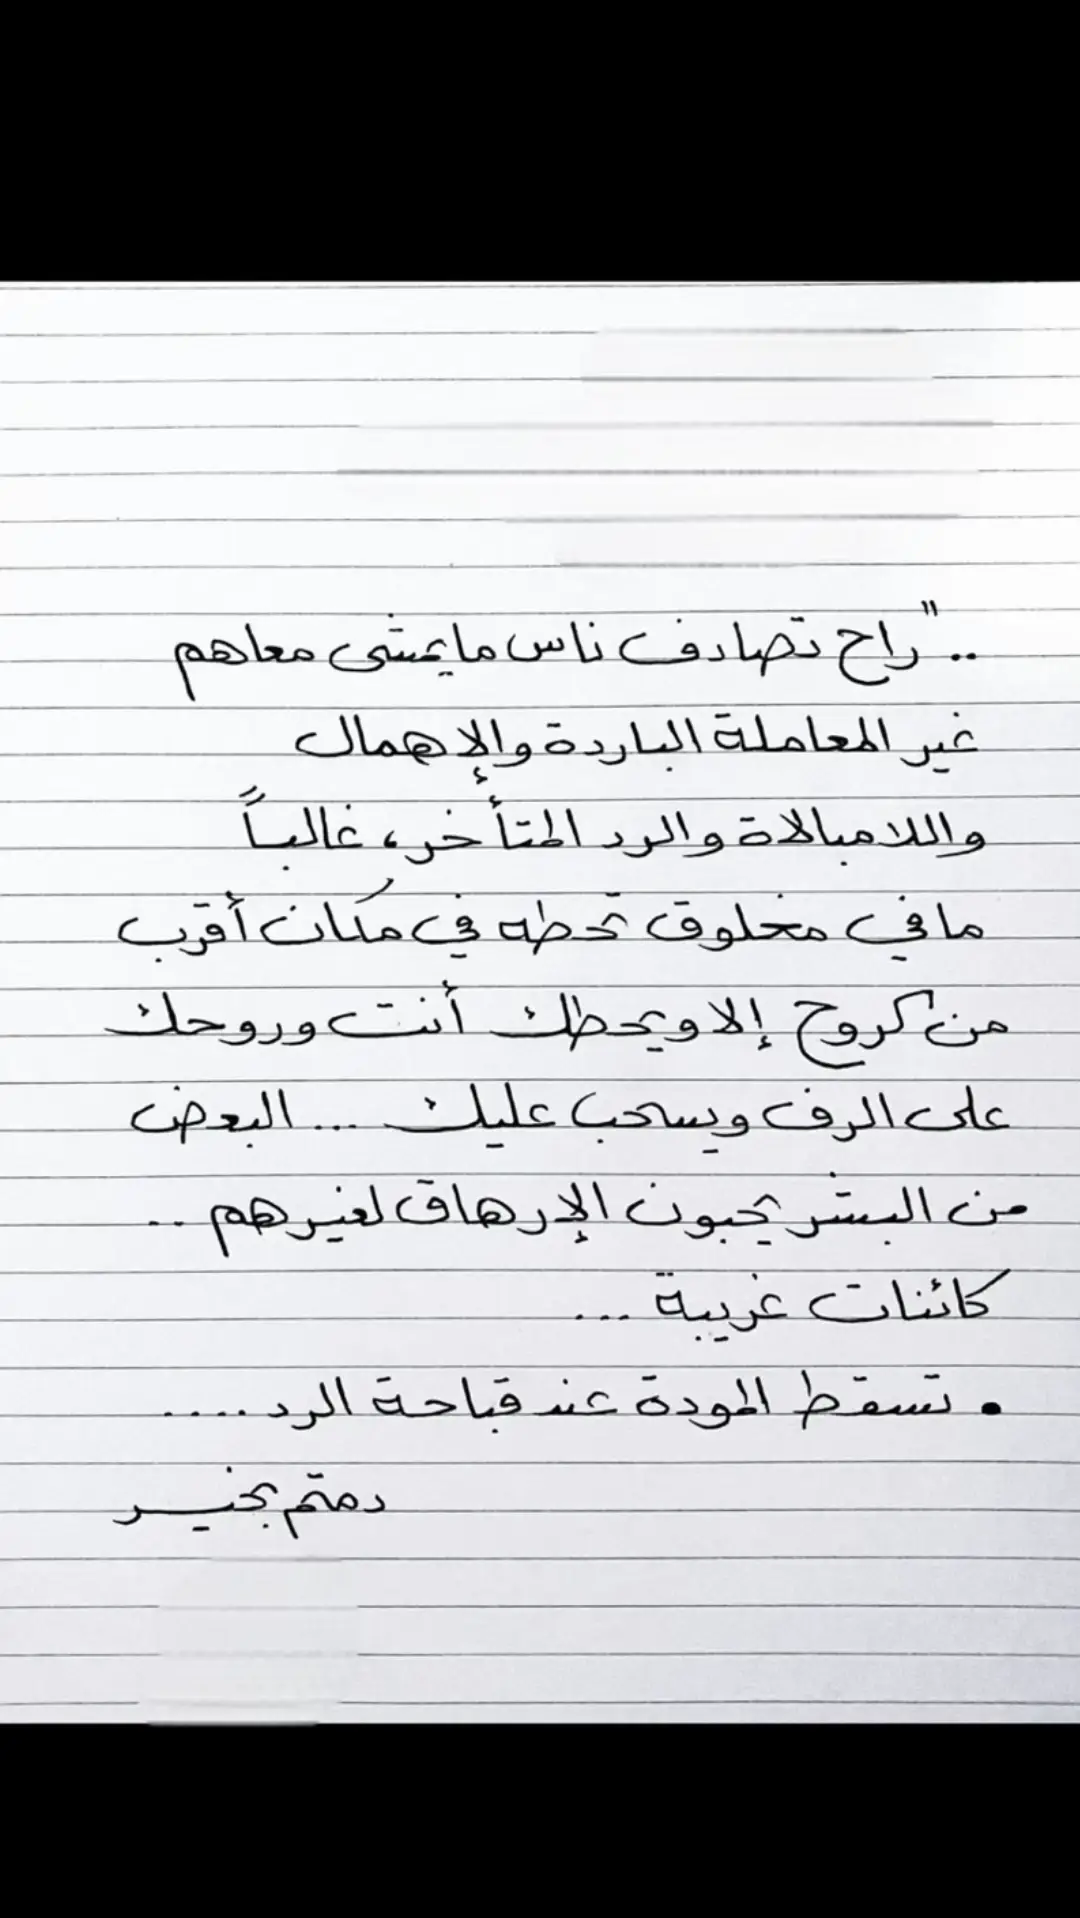 .. "راح تصادف ناس مايمشي معاهم
غير المعاملة الباردة والإهمال
واللامبالاة والرد المتأخر، غالباً
مافي مخلوق تحطه في مكان أقرب
من كروح إلا ويحطك أنت وروحك
على الرف ويسحب عليك ... البعض
من البشر يحبون الإرهاق لغيرهم ..
كائنات غريبة ...
• تسقط المودة عند قباحة الرد ....
دمتم بخير